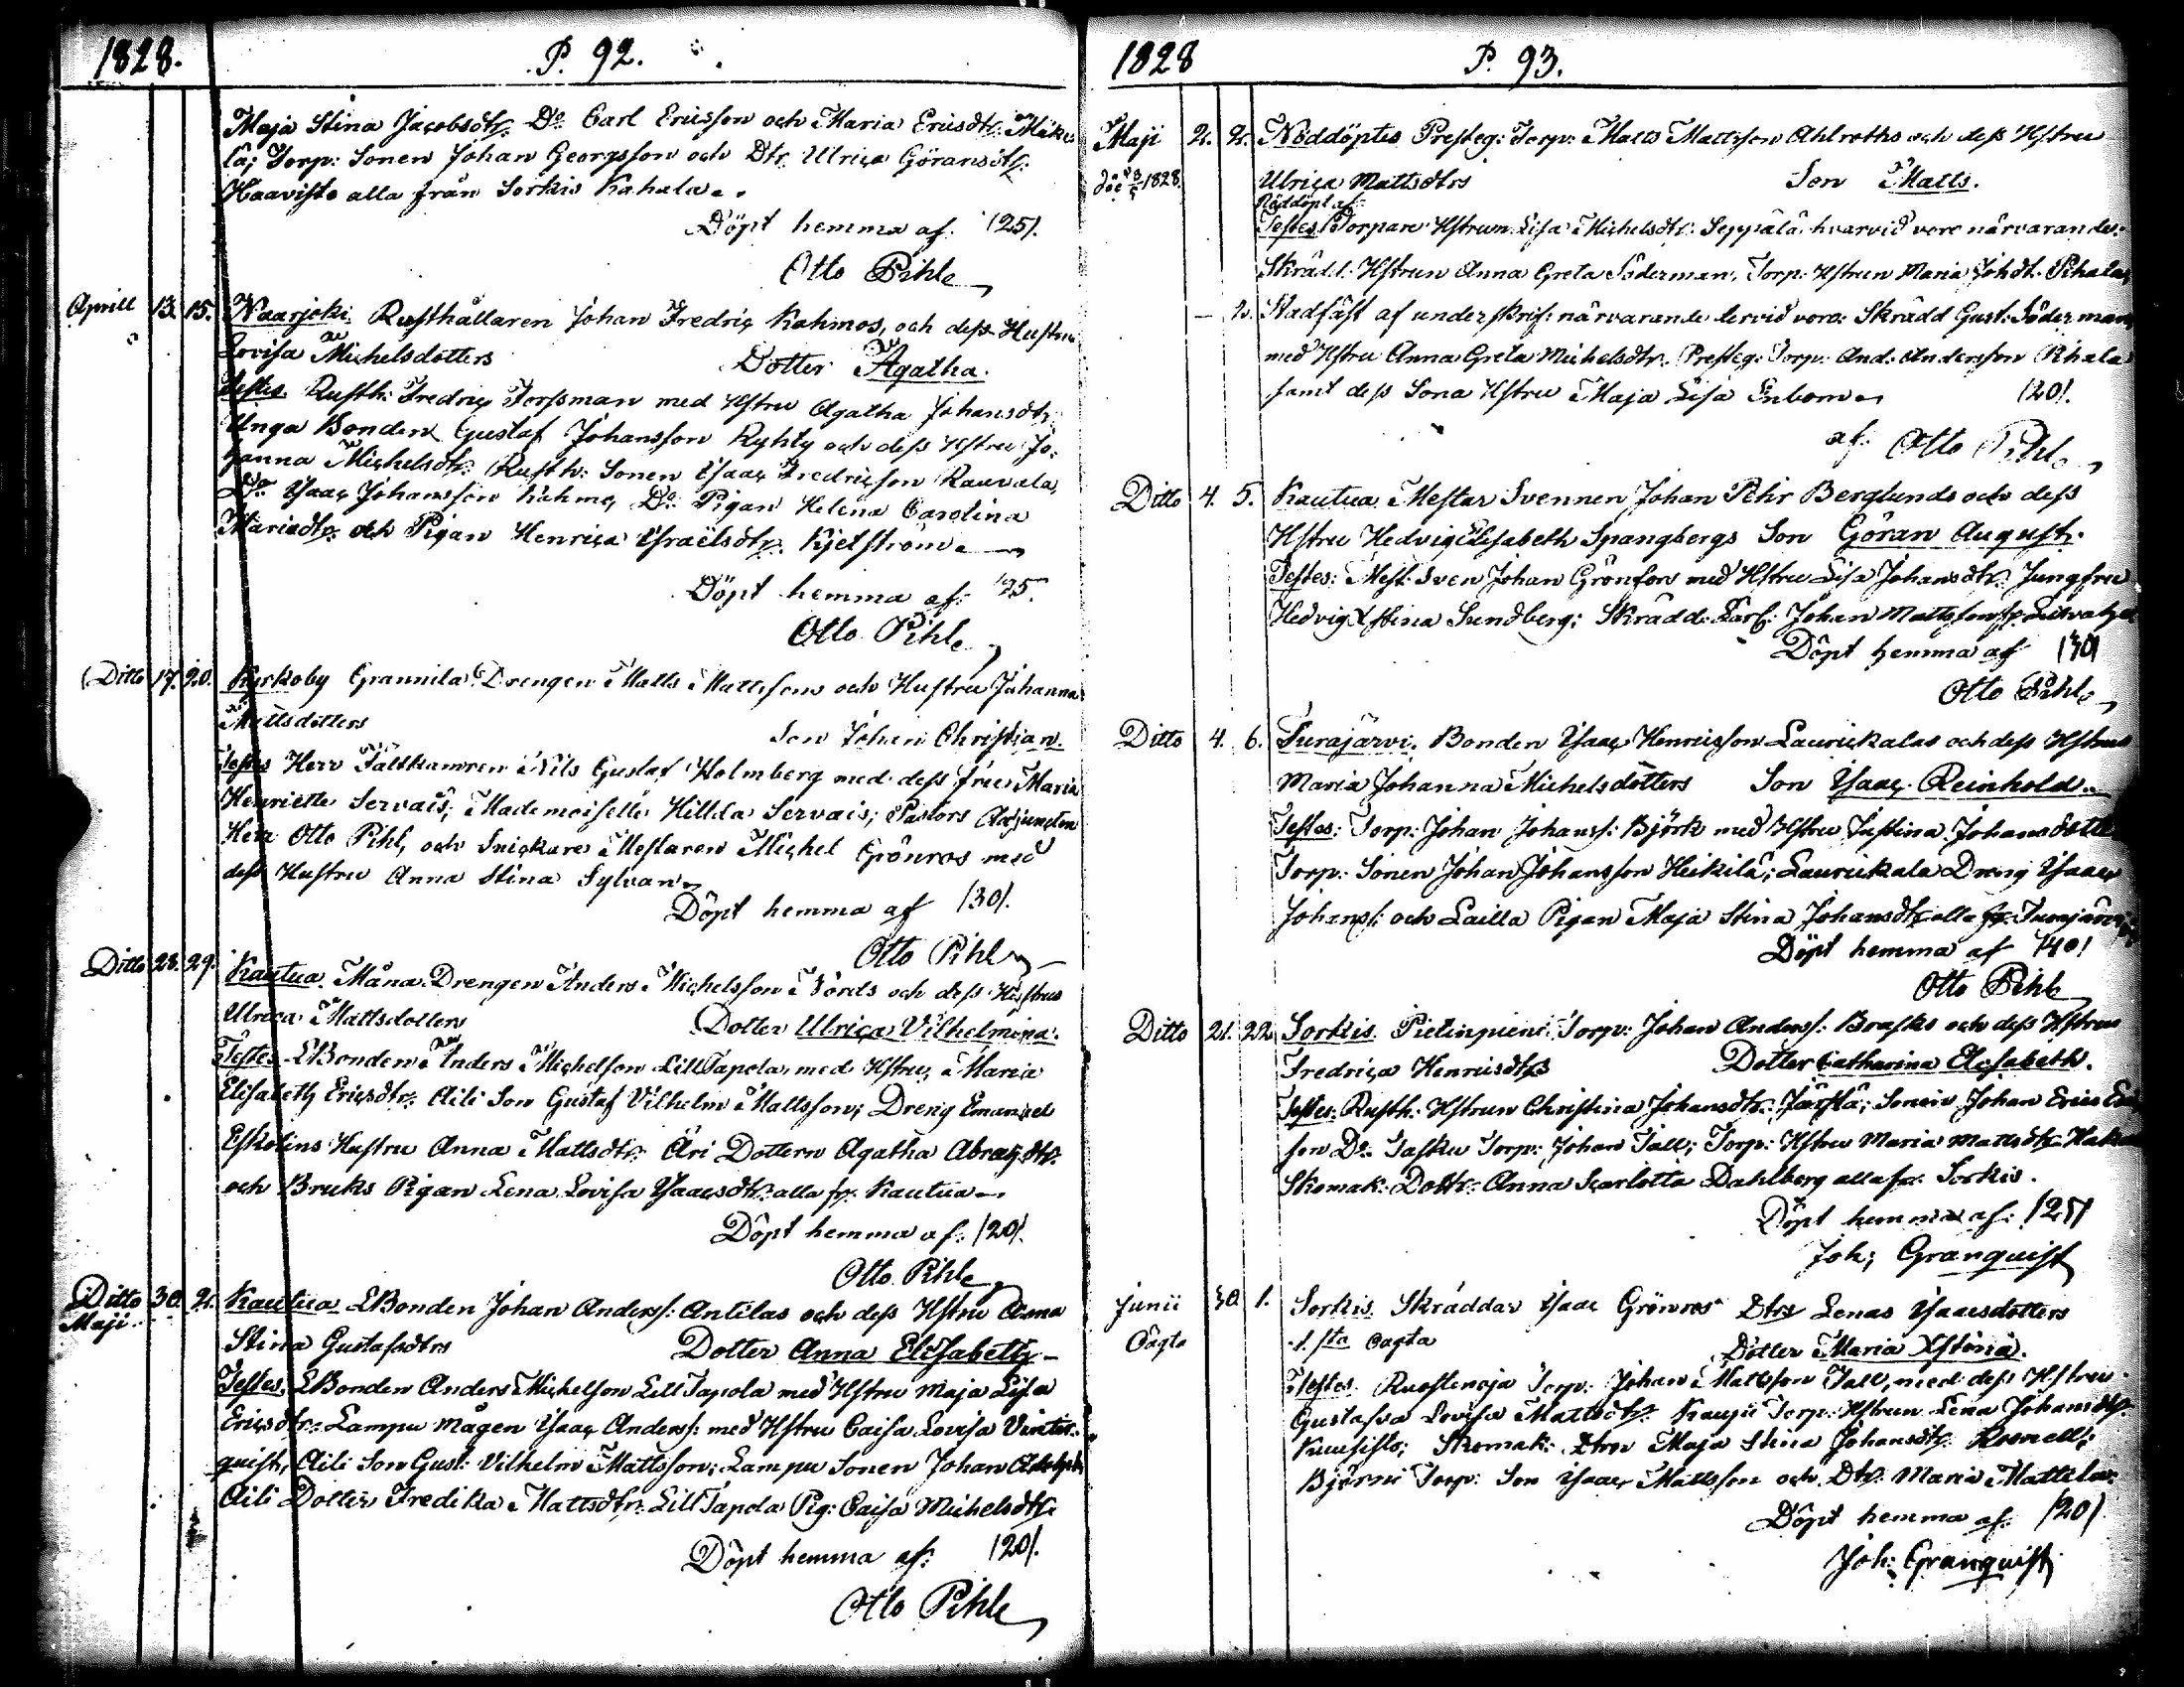 1828.
P. 92.
Maja Stina Jacobsdtr. Do Carl Ericsson och Maria Ericsdtr: Mäke
lä; Torp: Sonen Johan Georgsson och Dtr. Ulrica Göransdtr:
Haavisto alla från Sorkis Kahala.
Döpt hemma af. /25/.
Otto Pihl
Aprill 13. 15. Naarjoki. Rusthållaren Johan Fredric Kahmos, och dess Hustru
Lovisa Michelsdotters Dotter Agatha.
Testes. Rusth: Fredric Forssman med Hstru Agatha Johansdtr;
Unga Bonden Gustaf Johansson Ryhty och dess Hstru Jo-
hanna Michelsdtr: Rusth: Sonen Isaac Fredricsson Rauvala,
Do Isaac Johansson Kahma, Do Pigan Helena Carolina
Mariædtr. och Pigan Henrica Israëlsdtr. Kjelström.
Döpt hemma af: 25.
Otto Pihl
Ditto 17. 20. Kyrkoby Grannila Drengen Matts Mattssons och Hustru Johanna
Mattsdotters Son Johan Christian.
Testes Herr Fältkamren Nils Gustaf Holmberg med dess fru Maria
Henriette Servais; Mademoiselle Hillda Servais; Pastors Adjuncten
Herr Otto Pihl, och Snickare Mestaren Michel Grönros med
dess Hustru Anna Stina Sylvan.
Döpt hemma af /30/.
Otto Pihl
Ditto 28. 29. Kautua Måna Drengen Anders Michelsson Nords och dess Hustrus
Ulrica Mattsdotters Dotter Ulrica Vilhelmina.
Testes LBonden Anders Michelsson LillTapola med Hstru Maria
Elisabeth Ericsdtr: Aili Son Gustaf Vilhelm Mattsson; Dreng Emanuel
Eskolins Hustru Anna Mattsdtr: Äri Dottern Agatha Abrah:dtr.
och Bruks Pigan Lena Lovisa Isaacsdtr. alla fr. Kautua
Döpt hemma af: /20/.
Otto Pihl
Ditto 30. 2. Kautua LBonden Johan Anderss: Antilas och dess Hstru Anna
Maji
Stina Gustafsdtrs Dotter Anna Elisabeth
Testes. LBonden Anders Michelsson LillTapola med Hstru Maja Lisa
Ericsdtr: Lampu Mågen Isaac Anderss: med Hstru Caisa Lovisa Vinter-
quist, Aili Son Gust: Vilhelm Mattsson; Lampu Sonen Johan Adolph
Aili Dotter Fredika Mattsdtr. LillTapola Pig: Caisa Michelsdtr.
Döpt hemma af: /20/.
Otto Pihl
1828
P. 93.
Maji 2. 2. Nöddöptes Presteg: Torp: Matts Mattsson Ahlroths och dess Hstru
1828. Ulrica Mattsdtrs Son Matts.
Nöddöpt af:
Testes Torpare Hstrun Lisa Michelsdtr: Seppälä hvarvid voro närvarande:
Skrädd: Hstrun Anna Greta Söderman, Torp: Hstrun Maria Johdt. Pihala,
— 2. Stadfäst af underskrif: närvarande dervid voro: Skrädd Gust: Söderman
med Hstru Anna Greta Michelsdtr. Presteg: Torp: And: Andersson Pihala
samt dess Sona Hstru Maja Lisa Enbom /20/.
af: Otto Pihl
Ditto 4. 5. Kautua Mestar Svennen Johan Pehr Berglunds och dess
Hstru Hedvig Elisabeth Spangbergs Son Göran August.
Testes: Mest: Sven Johan Grönfors med Hstru Lisa Johansdtr: Jungfru
Hedvig Xstina Sundberg; Skrädd: Karl: Johan Mattsson
Döpt hemma af /30/
Otto Pihl
Ditto 4. 6. Turajärvi. Bonden Isaac Henricsson Laurickalas och dess Hstrus
Maria Johanna Michelsdotters Son Isaac Reinhold.
Testes: Torp: Johan Johanss: Björk med Hstru Justina Johansdotter
Torp: Sonen Johan Johansson Heikilä; Laurickala Dreng Isaac
Johanss: och Lailla Pigan Maja Stina Johansdtr alla fr. Turajärvi
Döpt hemma af /40/
Otto Pihl
Ditto 21. 22. Sorkis. Pietinpieni Torp: Johan Anderss: Brasks och dess Hstrus
Fredrica Henricsdtrs Dotter Catharina Elisabeth.
Testes. Rusth: Hstrun Christina Johansdtr: Sonen Johan Eric
son Do Jasku Torp: Johan Tall; Torp: Hstru Maria Mattsdtr
Skomak: Dottr: Anna Scarlotta Dahlberg alla fr. Sorkis.
Döpt hemma af: /25/
Joh; Granquist
Junii 30. 1. Sorkis. Skräddar Isaac Grönros Dtrs Lenas Isaacsdotters
Oägta 1. sta oägta Dotter Maria Xstina.
Testes. Ruostenoja Torp: Johan Mattsson Tall, med dess Hstru
Gustafva Lovisa Mattsdtr. Kauju Torp: Hstrun Lena Johansdtr.
Kuusisto; Skomak: Dtren Maja Stina Johansdtr. Rosnell;
Björni Torp: Son Isaac Mattsson och Dtr. Maria Mattila.
Döpt hemma af. /20/
Joh: Granquist